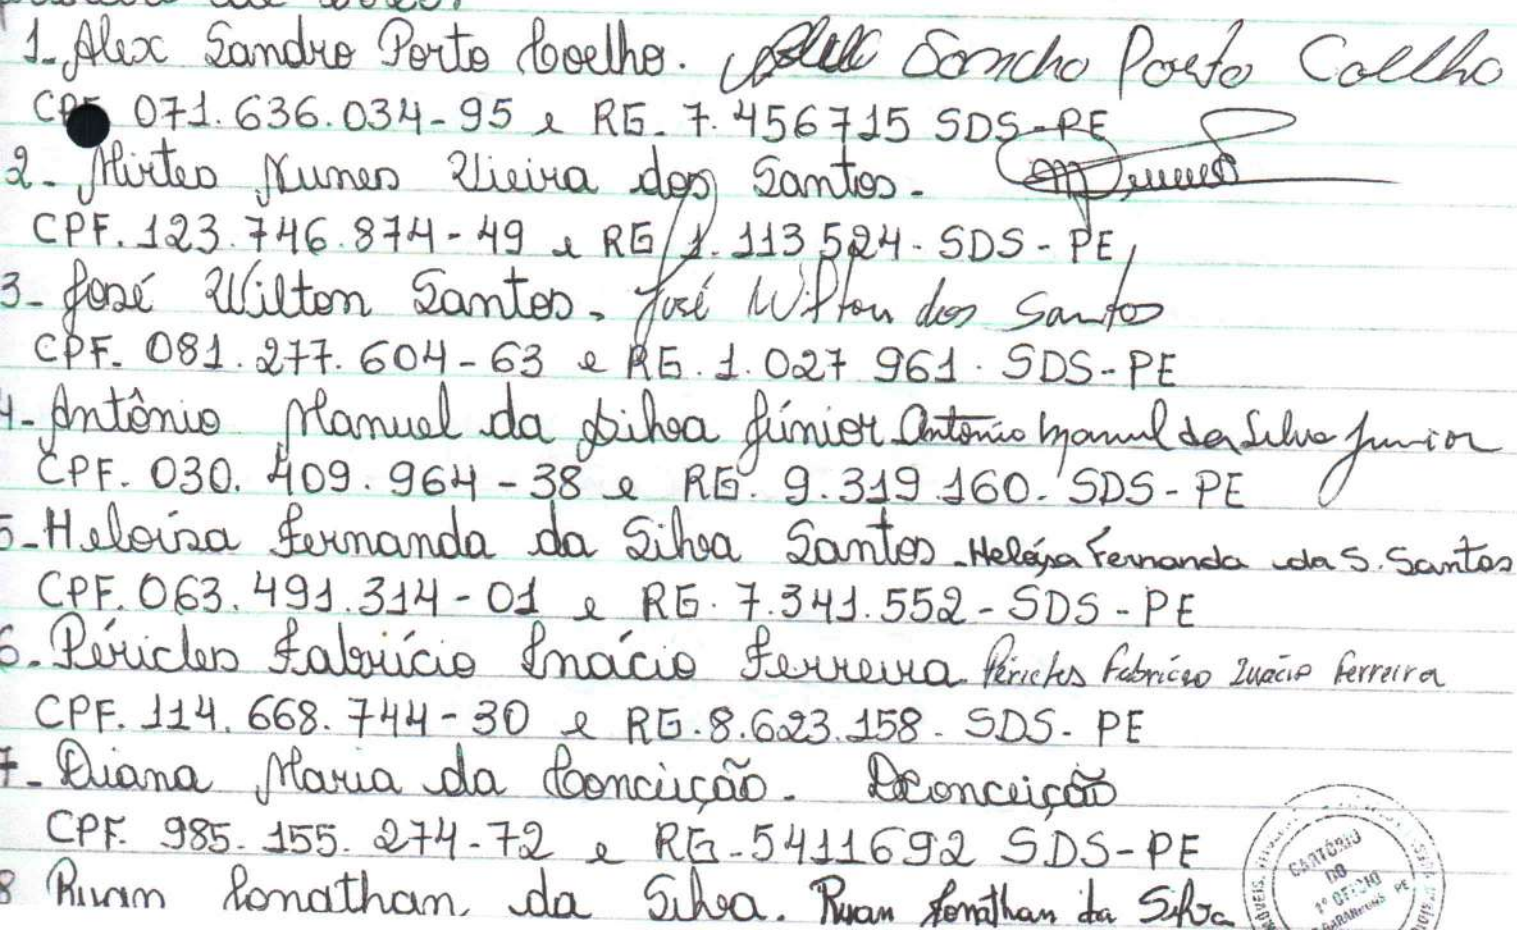 1- Alex Sandro Porto Coelho. Alex Sandro Porto Coelho
CPF. 071.636.034-95 e RG. 7.456715 SDS-PE
2- Mirtes Nunes Vieira dos Santos.
CPF. 123.746.874-49 e RG 1.113524- SDS - PE
3- José Wilton Santos. José Wilton dos Santos
CPF. 081.277.604-63 e RG. 1.027 961. SDS-PE
4- Antônio Manuel da Silva Júnior Antonio Manuel da Silva Junior
CPF. 030.409.964-38 e RG. 9.319.160. SDS-PE
5- Heloísa Fernanda da Silva Santos. Heloísa Fernanda da S. Santos
CPF. 063.491.314-01 e RG. 7.341.552-SDS-PE
6. Péricles Fabrício Inácio Ferreira Péricles Fabrício Inácio Ferreira
CPF. 114.668.744-30 e RG.8.623.158. SDS-PE
7- Diana Maria da Conceição. DConceição
CPF. 985.155.274-72 e RG-5411692 SDS-PE
8 Ruan Jonathan da Silva. Ruan Jonathan da Silva
CARTÓRIO
DO
1º OFÍCIO
GARANHUNS PE